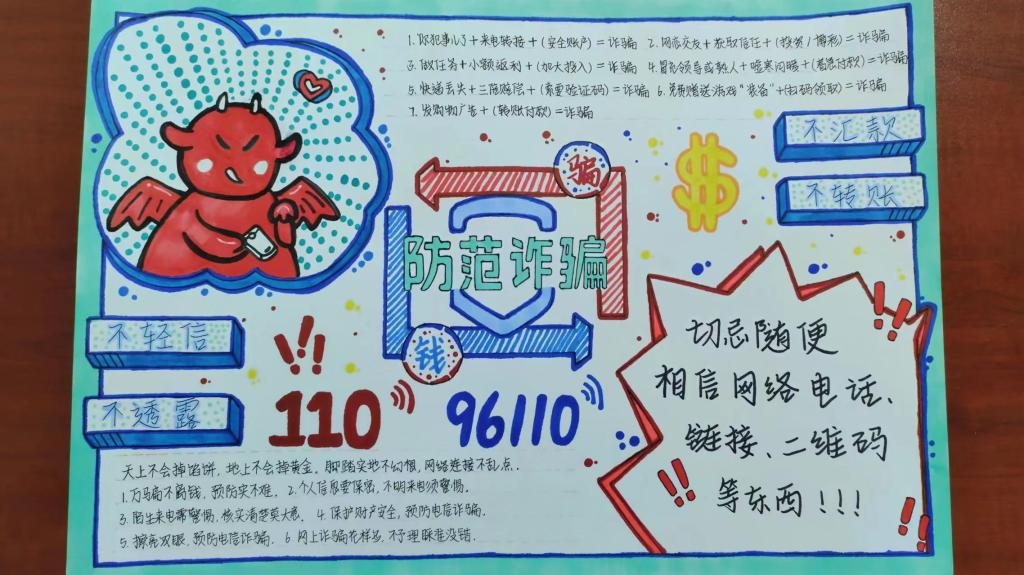 1.你犯事儿了+来电转接+(安全账户)=诈骗 2.网恋交友+获取信任+(投资/博彩)=诈骗
3.做任务+小额返利+(加大投入)=诈骗 4.冒充领导或熟人+嘘寒问暖+(着急付款)=诈骗
5.快递丢失+三倍赔偿+(索要验证码)=诈骗 6.免费赠送游戏"装备"+(扫码领取)=诈骗
7.发购物广告+(转账付款)=诈骗
不汇款
不转账
骗
防范诈骗
钱
不轻信
不透露
!!!
110
96110
切忌随便
相信网络电话、
链接、二维码
等东西!!!
!!
!!
!!
天上不会掉馅饼,地上不会掉黄金。脚踏实地不幻想,网络连接不乱点.
1.万骗不离钱,预防实不难. 2.个人信息要保密,不明来电须警惕.
3.陌生来电需警惕,核实清楚莫大意. 4.保护财产安全,预防电信诈骗.
5.擦亮双眼,预防电信诈骗. 6.网上诈骗花样多,不予理睬准没错.